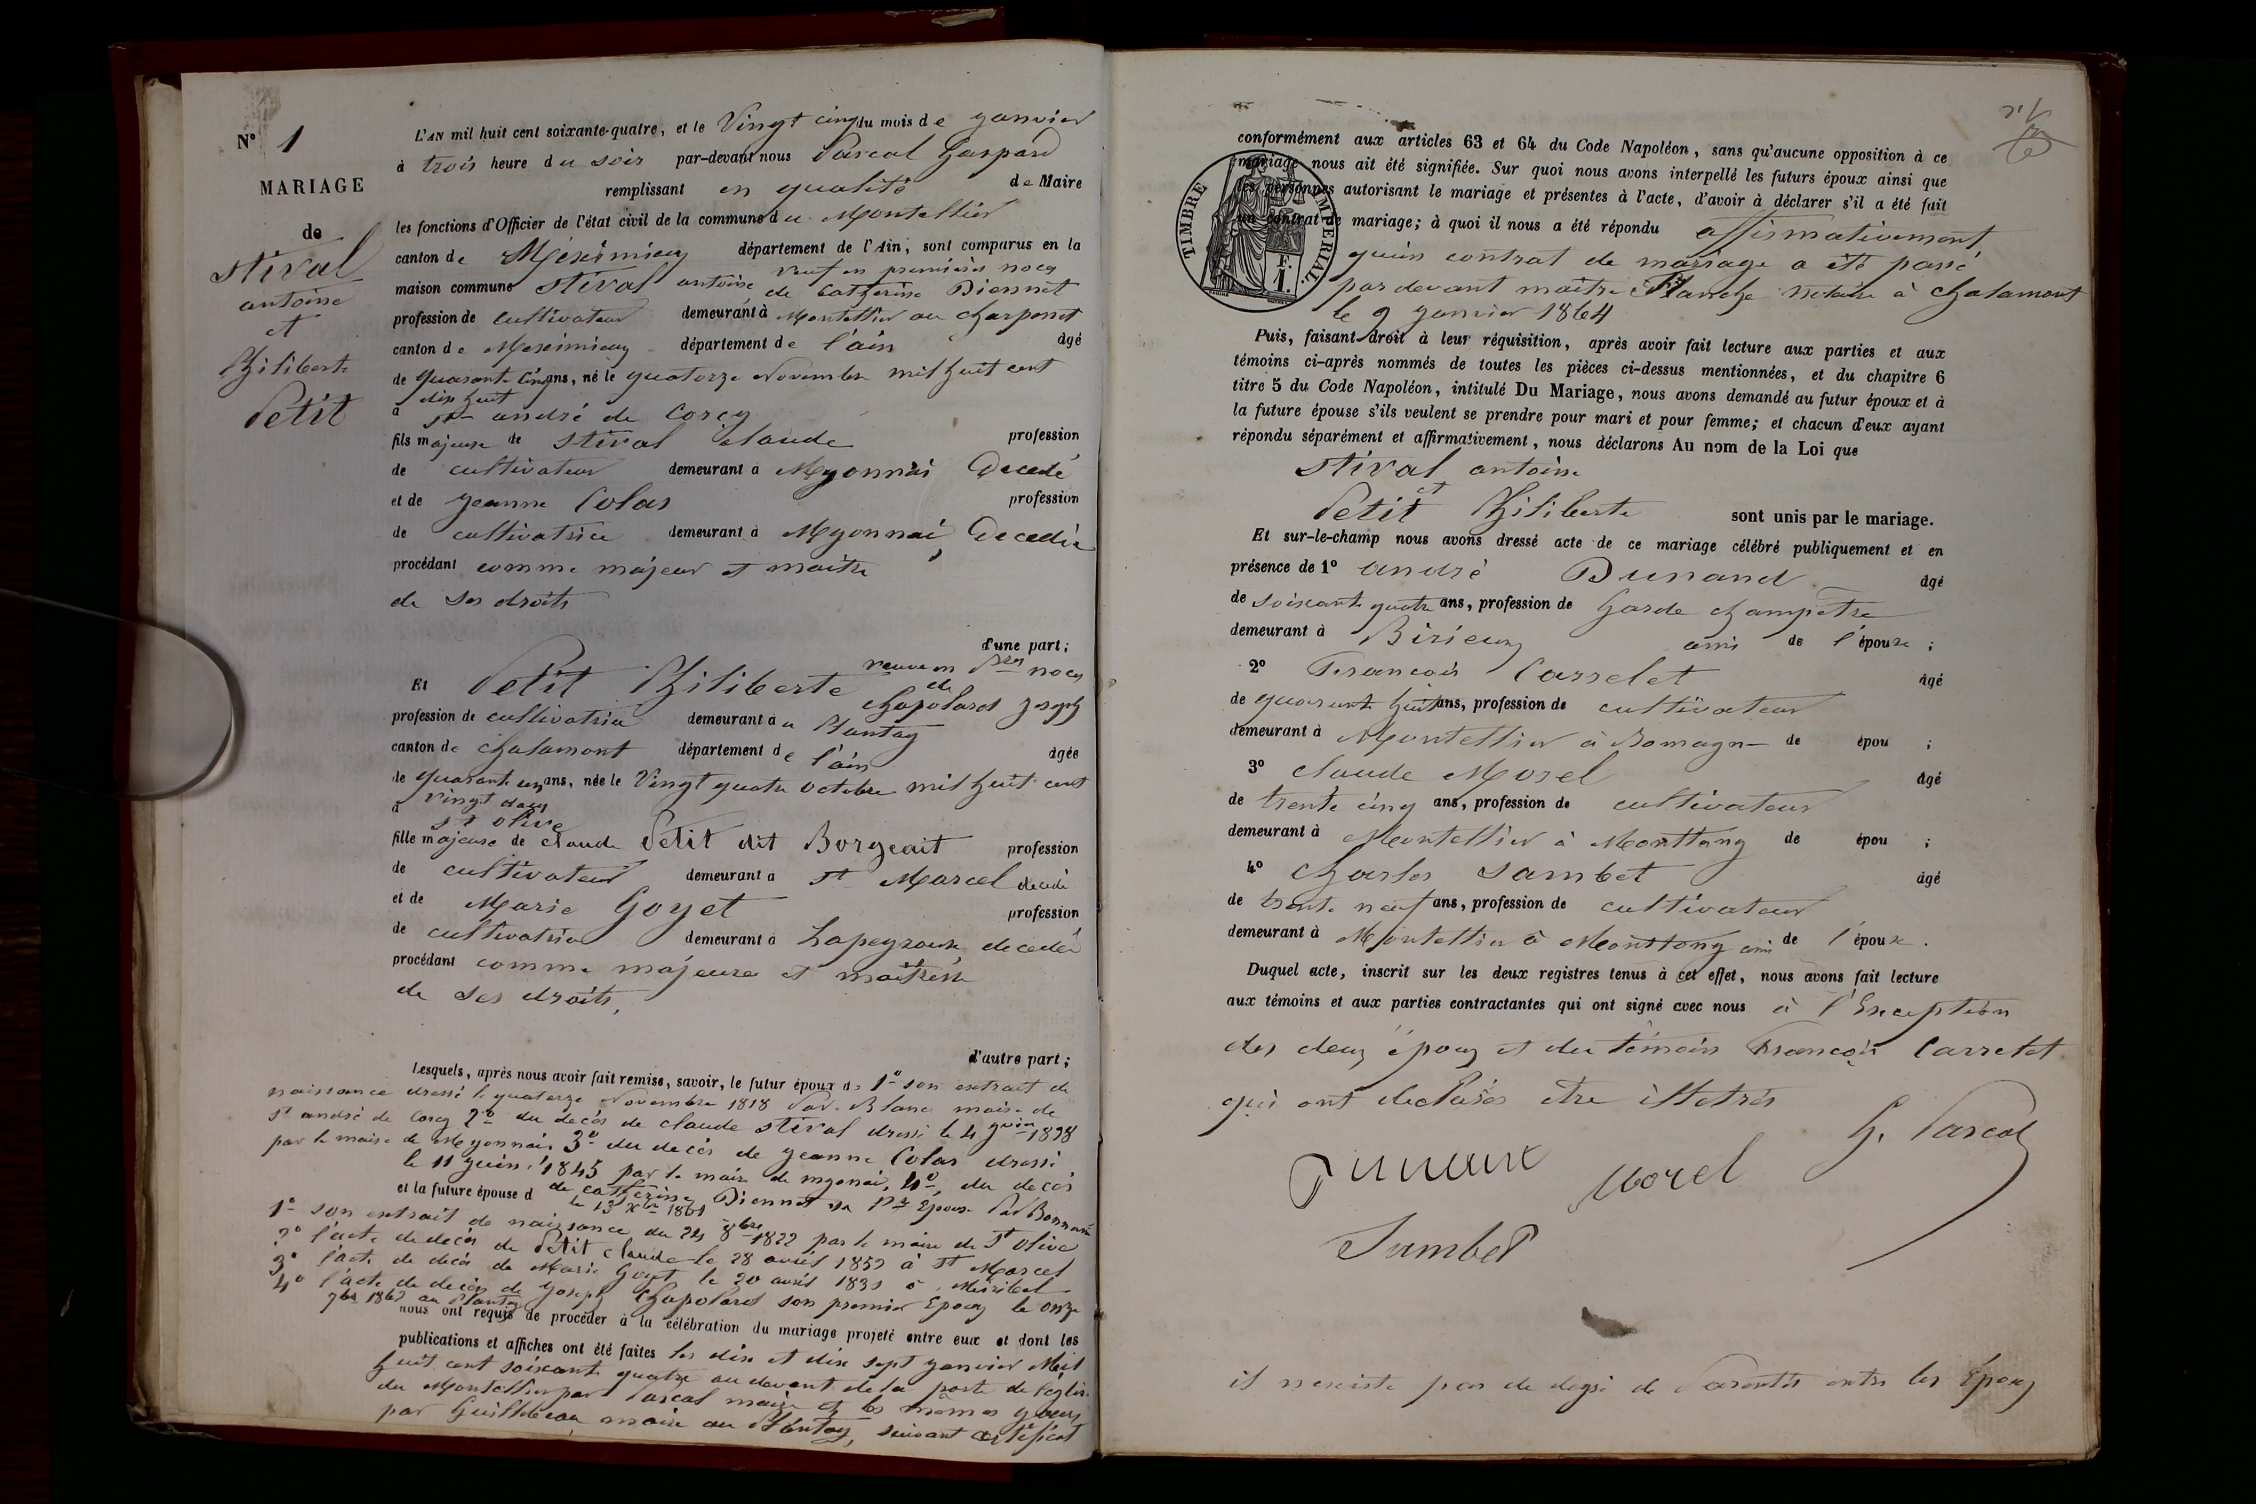 N° 1
MARIAGE
de
Stival
antoine
et
Philiberte
Petit
L'AN mil huit cent soixante-quatre, et le Vingt cinq du mois de janvier
à trois heure du soir par-devant nous Pascal Gaspard
remplissant en qualité de Maire
les fonctions d'Officier de l'état civil de la commune du Montellier
canton de Meximieux département de l'Ain, sont comparus en la
maison commune Stival antoine veuf en premières noces de Catherine Diennet
profession de cultivateur demeurant à Montellier au Charpenet
canton de Meximieux département de l'ain âgé
de quarante cinq ans, né le quatorze Novembre mil huit cent
dix huit
à St andré de Corcy
fils majeur de Stival Claude profession
de cultivateur demeurant à Myonnai Decedé
et de jeanne Colas profession
de cultivatrice demeurant à Myonnai, Decedée
procédant comme majeur et maitre
de ses droits
d'une part;
Et Petit Philiberte veuve en 1res noces de Chapolard joseph
profession de cultivatrice demeurant à au Plantay
canton de Chalamont département de l'ain âgée
de quarante un ans, née le Vingt quatre octobre mil huit cent
vingt deux
à St olive
fille majeure de Claude Petit dit Borgeait profession
de cultivateur demeurant à St Marcel decedé
et de Marie Goyet profession
de cultivatrice demeurant à Lapeyrouse decedée
procédant comme majeure et maitresse
de ses droits,
d'autre part;
Lesquels, après nous avoir fait remise, savoir, le futur époux de 1° son extrait de
naissance dressé le quatorze Novembre 1818 Par Blanc maire de
St andré de Corcy 2° du decés de Claude Stival dressé le 4 juin 1838
par le maire de Myonnais 3° du decés de jeanne Colas dressé
le 11 juin 1845 par le maire de myonai, 4°, du decés
de Catherine Diennet sa 1re Epouse Par Bonnard
le 13 Xbre 1861
et la future épouse d
1° son extrait de naissance du 24 8bre 1822 par le maire de St olive
2° l'acte de decés de Petit Claude le 28 avril 1852 à St Marcel
3° l'acte de decés de Marie Goyet le 20 avril 1831 à Miribel
4° l'acte de decés de Joseph Chapolard son premier Epoux le onze
9bre 1862 au Plantay
nous ont requis de procéder à la célébration du mariage projeté entre eux et dont les
publications et affiches ont été faites les dix et dix sept janvier Mil
huit cent soixante quatre au devant de la porte de l'église
du Montellier par Pascal maire et les mêmes jours
par Guillebeau maire au Plantay, suivant certificat
conformément aux articles 63 et 64 du Code Napoléon, sans qu'aucune opposition à ce
mariage nous ait été signifiée. Sur quoi nous avons interpellé les futurs époux ainsi que
les personnes autorisant le mariage et présentes à l'acte, d'avoir à déclarer s'il a été fait
un contrat de mariage; à quoi il nous a été répondu affirmativement
TIMBRE IMPERIAL.
F.
1.
qu'un contrat de mariage a été passé
par devant maitre Planche Notaire à Chalamont
le 9 janvier 1864
Puis, faisant droit à leur réquisition, après avoir fait lecture aux parties et aux
témoins ci-après nommés de toutes les pièces ci-dessus mentionnées, et du chapitre 6
titre 5 du Code Napoléon, intitulé Du Mariage, nous avons demandé au futur époux et à
la future épouse s'ils veulent se prendre pour mari et pour femme; et chacun d'eux ayant
répondu séparément et affirmativement, nous déclarons Au nom de la Loi que
Stival antoine
et
Petit Philiberte sont unis par le mariage.
Et sur-le-champ nous avons dressé acte de ce mariage célébré publiquement et en
présence de 1° André Dunand âgé
de soixante quatre ans, profession de Garde champetre
demeurant à Birieux ami de l'épouse;
2° Francois Carrelet âgé
de quarante huit ans, profession de cultivateur
demeurant à Montellier à Romagne de épou ;
3° Claude Morel âgé
de trente cinq ans, profession de cultivateur
demeurant à Montellier à Monttang de épou ;
4° Charles Sambet âgé
de trente neuf ans, profession de cultivateur
demeurant à Montellier à Monttong ami de l'épouse.
Duquel acte, inscrit sur les deux registres tenus à cet effet, nous avons fait lecture
aux témoins et aux parties contractantes qui ont signé avec nous à l'Exception
des deux époux et du témoin Francois Carretet
qui ont declarés etre illetrés
G. Pascal
Morel
Sumbet
il n'existe pas de degré de Parentés entre les Epoux